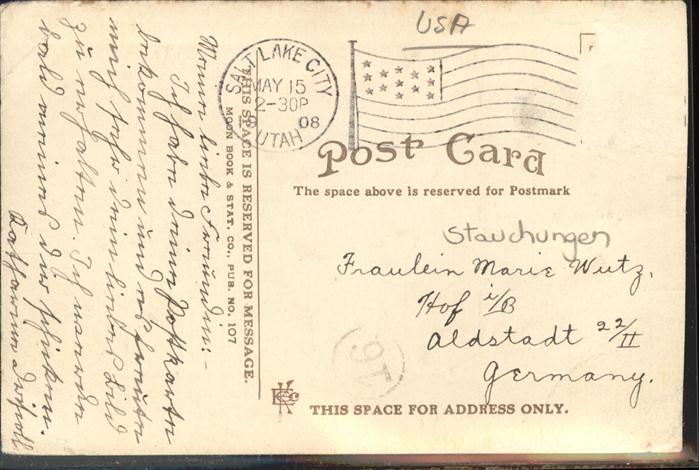 USA
SALT LAKE CITY
MAY 15
2-30P
08
UTAH
Post Card
The space above is reserved for Postmark
Stauchungen
Fraulein Marie Wutz,
Hof i/B
Aldstadt 22/II
Germany.
THIS SPACE FOR ADDRESS ONLY.
THIS SPACE IS RESERVED FOR MESSAGE.
MOON BOOK & STAT. CO., PUB. NO. 107
Meine liebe Freundin:-
Ich habe deine Postkarte
bekommen und es freute
mich sehr dein liebes Bild
zu erhalten. Ich werde
bald meines dir schicken.